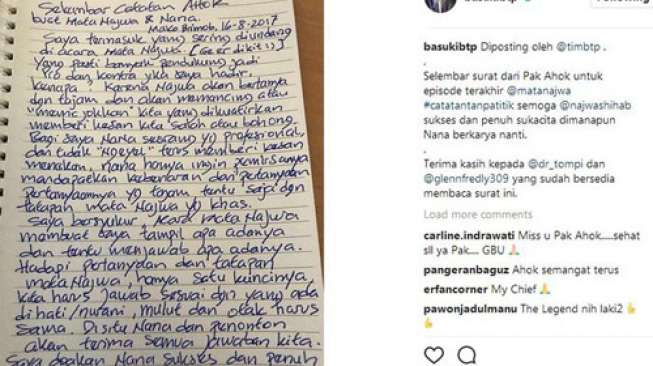 Selembar Catatan Ahok
buat Mata Najwa & Nana.
Mako Brimob, 16-8-2017
Saya termasuk yang sering diundang
di acara Mata Najwa. (Geer dikit !)
Yang pasti banyak pendukung jadi
Pro dan kontra jika saya hadir.
Kenapa? Karena Najwa akan bertanya
dgn tajam dan akan memancing atau
yang dikuatirkan
memberi kesan kita salah atau bohong.
Bagi saya Nana seorang yg profesional,
dan tidak "Ngeyel" terus memberi kesan
menekan, nana hanya ingin pemirsanya
mendapatkan kebenaran dari pertanyaan
Pertanyaannya yg tajam, tentu saja dgn
tatapan mata Najwa yg khas.
Saya bersyukur, acara mata Najwa
membuat saya tampil apa adanya
dan tentu menjawab apa adanya.
Hadapi pertanyaan dan tatapan
mata Najwa, hanya satu kuncinya
kita harus jawab sesuai dgn yang ada
di hati/nurani, mulut dan otak harus
sama. Disitu Nana dan penonton
akan terima semua jawaban kita.
Saya doakan Nana sukses dan penuh
basukibtp
Following
basukibtp Diposting oleh @timbtp .
.
Selembar surat dari Pak Ahok untuk
episode terakhir @matanajwa
#catatantanpatitik semoga @najwashihab
sukses dan penuh sukacita dimanapun
Nana berkarya nanti.
.
Terima kasih kepada @dr_tompi dan
@glennfredly309 yang sudah bersedia
membaca surat ini.
Load more comments
carline.indrawati Miss u Pak Ahok.....sehat
sll ya Pak.... GBU 🙏
pangeranbaguz Ahok semangat terus
erfancorner My Chief 🙏
pawonjadulmanu The Legend nih laki2 👍
👍